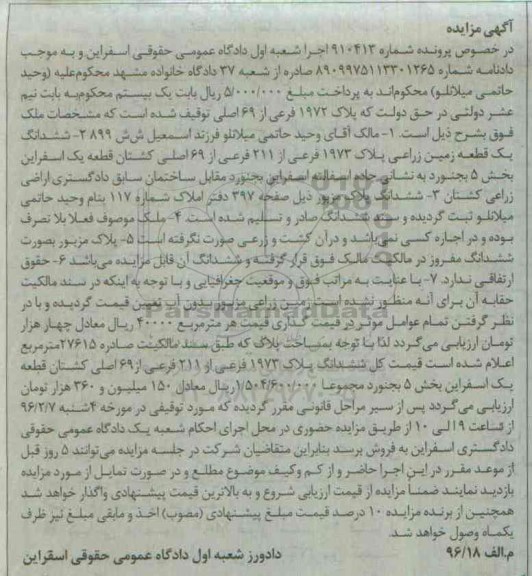 آگهی مزایده
در خصوص پرونده شماره ۹۱۰۴۱۳ اجرا شعبه اول دادگاه عمومی حقوقی اسفراین و به موجب
دادنامه شماره ۸۹۰۹۹۷۵۱۱۳۳۰۱۲۶۵ صادره از شعبه ۳۷ دادگاه خانواده مشهد محکوم‌علیه (وحید
حاتمی میلانلو) محکوم‌اند به پرداخت مبلغ ۵/۰۰۰/۰۰۰ ریال بابت یک بیستم محکوم‌به بابت نیم
عشر دولتی در حق دولت که پلاک ۱۹۷۲ فرعی از ۶۹ اصلی توقیف شده است که مشخصات ملک
فوق بشرح ذیل است. ۱- مالک آقای وحید حاتمی میلانلو فرزند اسمعیل ش‌ش ۸۹۹ ۲- ششدانگ
یک قطعه زمین زراعی پلاک ۱۹۷۳ فرعی از ۲۱۱ فرعی از ۶۹ اصلی کشتان قطعه یک اسفراین
بخش ۵ بجنورد به نشانی جاده آسفالته اسفراین بجنورد مقابل ساختمان سابق دادگستری اراضی
زراعی کشتان ۳- ششدانگ پلاک مزبور ذیل صفحه ۳۹۷ دفتر املاک شماره ۱۱۷ بنام وحید حاتمی
میلانلو ثبت گردیده و سند ششدانگ صادر و تسلیم شده است. ۴- ملک موصوف فعلا بلا تصرف
بوده و در اجاره کسی نمی‌باشد و در آن کشت و زرعی صورت نگرفته است ۵- پلاک مزبور بصورت
ششدانگ مفروز در مالکیت مالک فوق قرار گرفته و ششدانگ آن قابل مزایده می‌باشد ۶- حقوق
ارتفاقی ندارد. ۷- با عنایت به مراتب فوق و موقعیت جغرافیایی و با توجه به اینکه در سند مالکیت
حقابه آن برای آنه منظور نشده است زمین زراعی مزبور بدون آب تعیین قیمت گردیده و با در
نظر گرفتن تمام عوامل موثر در قیمت گذاری قیمت هر مترمربع ۴۰۰۰۰ ریال معادل چهار هزار
تومان ارزیابی می‌گردد لذا با توجه بمساحت پلاک که طبق سند مالکیت صادره ۲۷۶۱۵مترمربع
اعلام شده است قیمت کل ششدانگ پلاک ۱۹۷۳ فرعی از ۲۱۱ فرعی از۶۹ اصلی کشتان قطعه
یک اسفراین بخش ۵ بجنورد مجموعا ۱/۵۰۴/۶۰۰/۰۰۰ریال معادل ۱۵۰ میلیون و ۳۶۰ هزار تومان
ارزیابی می‌گردد پس از سیر مراحل قانونی مقرر گردیده که مورد توقیفی در مورخه ۴شنبه ۹۶/۲/۷
از ساعت ۹ الی ۱۰ از طریق مزایده حضوری در محل اجرای احکام شعبه یک دادگاه عمومی حقوقی
دادگستری اسفراین به فروش برسد بنابراین متقاضیان شرکت در جلسه مزایده می‌توانند ۵ روز قبل
از موعد مقرر در این اجرا حاضر و از کم وکیف موضوع مطلع و در صورت تمایل از مورد مزایده
بازدید نمایند ضمناً مزایده از قیمت ارزیابی شروع و به بالاترین قیمت پیشنهادی واگذار خواهد شد
همچنین از برنده مزایده ۱۰ درصد قیمت مبلغ پیشنهادی (مصوب) اخذ و مابقی مبلغ نیز ظرف
یکماه وصول خواهد شد.
م.الف ۹۶/۱۸ دادورز شعبه اول دادگاه عمومی حقوقی اسفراین
ParsNamadData